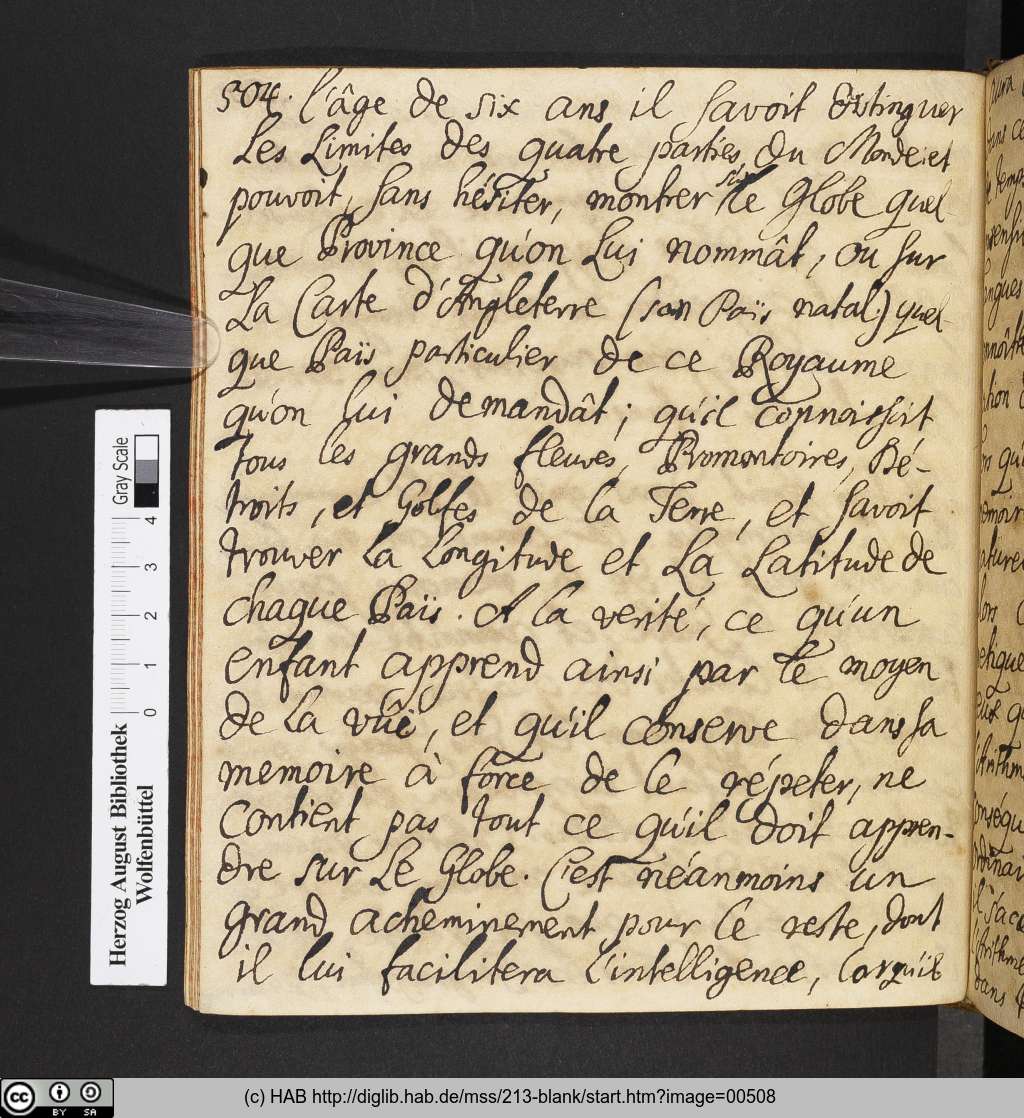 504. l'âge de six ans il savoit distinguer
Les Limites des quatre parties du Monde; et
pouvoit, sans hésiter, montrer sur le Globe quel-
que Province qu'on Lui nommât, ou sur
La Carte d'Angleterre (son Païs natal) quel-
que Païs particulier de ce Royaume
qu'on lui demandât; qu'il connoissoit
tous les grands fleuves, Promontoires, Dé-
troits, et Golfes de la Terre, et savoit
trouver la Longitude et La Latitude de
chaque Païs. A la verité, ce qu'un
enfant apprend ainsi par le moyen
de la vûë, et qu'il conserve dans sa
memoire à force de le répeter, ne
contient pas tout ce qu'il doit appren-
dre sur Le Globe. C'est néanmoins un
grand acheminement pour le reste, dont
il lui facilitera l'intelligence, lorsqu'il
Herzog August Bibliothek
Wolfenbüttel
Gray Scale
0 1 2 3 4
cc BY SA
(c) HAB http://diglib.hab.de/mss/213-blank/start.htm?image=00508